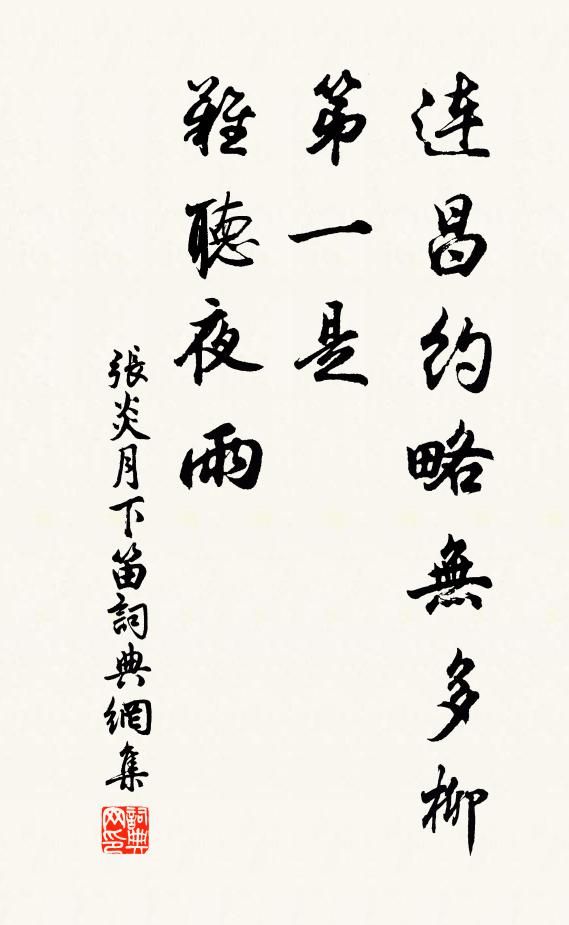 連昌約略無多柳
第一是
難聽夜雨
張炎月下笛詞典網集
詞典網印